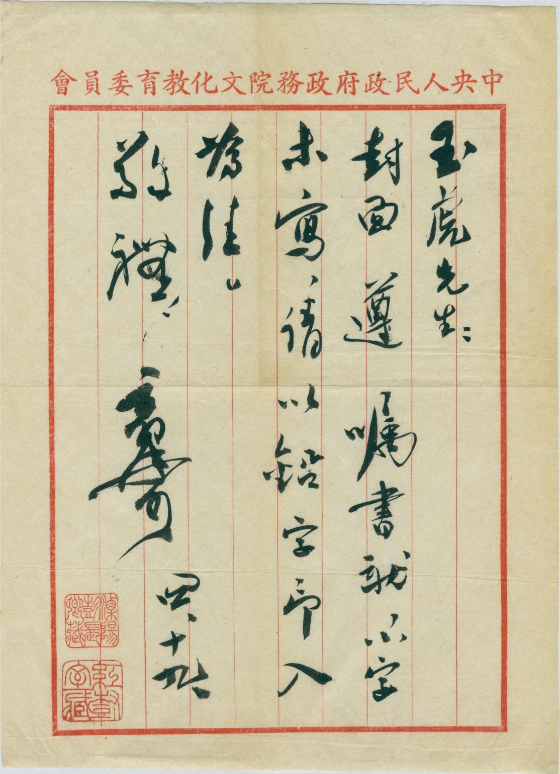 中央人民政府政務院文化教育委員會
玉虎先生：
封面遵嘱書就小字
未寫、請以鉛字印入
為佳。
敬禮！
郭沫若
四、十九、